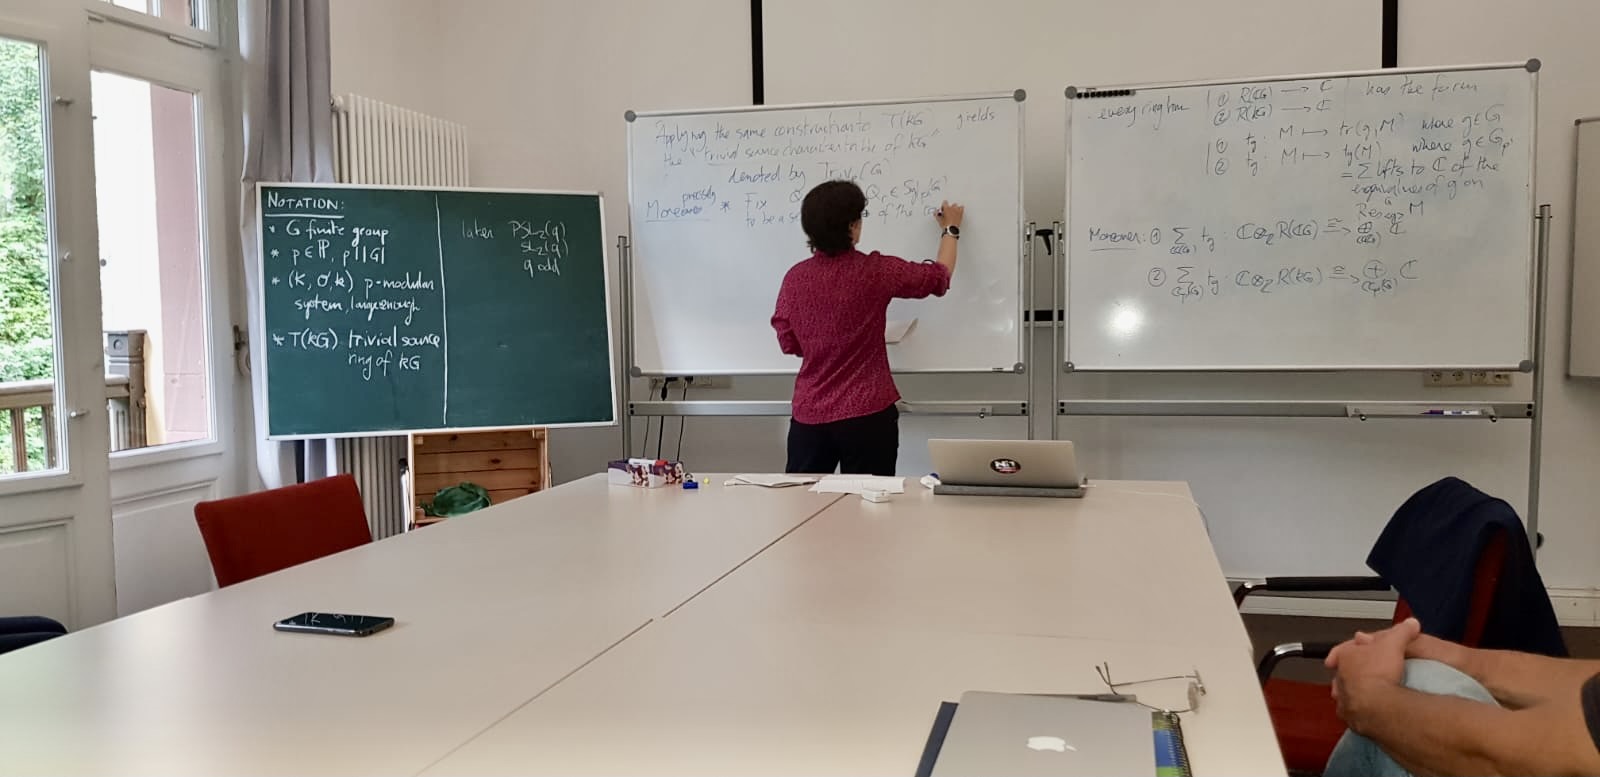 NOTATION:
* G finite group
* p∈ℙ, p||G|
* (K, O, k) p-modular
system, large enough
* T(kG) trivial source
ring of kG
later PSL₂(q)
SL₂(q)
q odd
Applying the same construction to T(kG) yields
the "trivial source character table of kG"
denoted by Triv_p(G)
Moreover precisely * Fix
to be a of the
every ring hom ① R(CG) → C has the form
② R(kG) → C
① t_g : M ↦ tr(g, M) where g∈G
② t_g : M ↦ t_g(M) where g∈G_p'
= Σ lifts to C of the
eigenvalues of g on
Res M
Moreover: ① Σ t_g : C⊗_Z R(CG) ≅→ ⊕ C
② Σ t_g : C⊗_Z R(kG) ≅→ ⊕ C